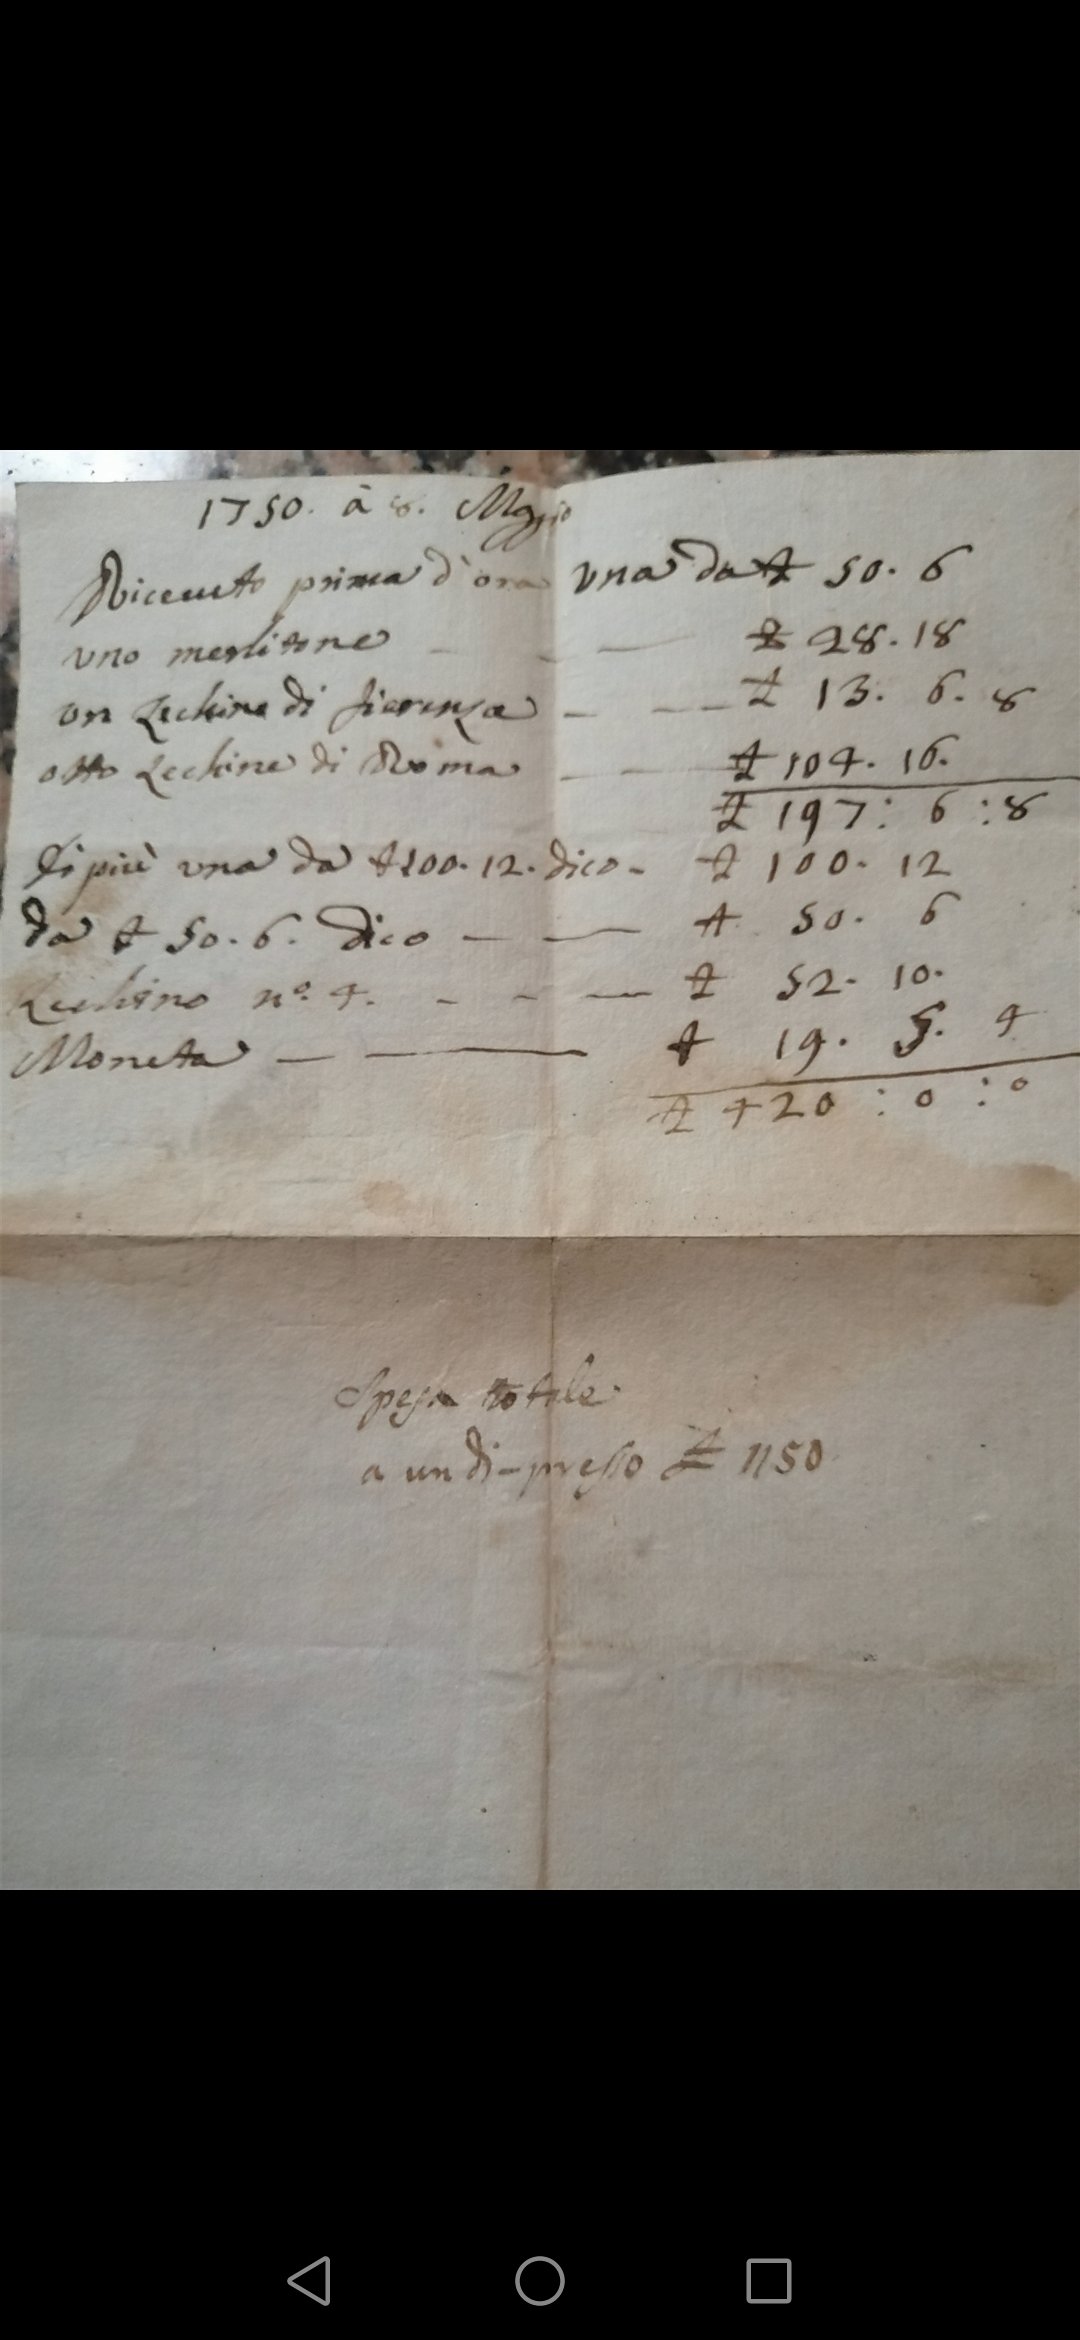 1750. à 8. Maggio
Riceuuto prima d'ora una da £ 50. 6
uno merlitone £ 28. 18
un Zechine di fierenza £ 13. 6. 8
otto Zechine di Roma £ 104. 16.
£ 197: 6: 8
Di più una da £ 100. 12. dico £ 100. 12
da £ 50. 6. dico £ 50. 6
Zechino n°. 4. £ 52. 10.
Moneta £ 19. 5. 4
£ 420: 0: 0
Spesa totale
a un di-presso £ 1150